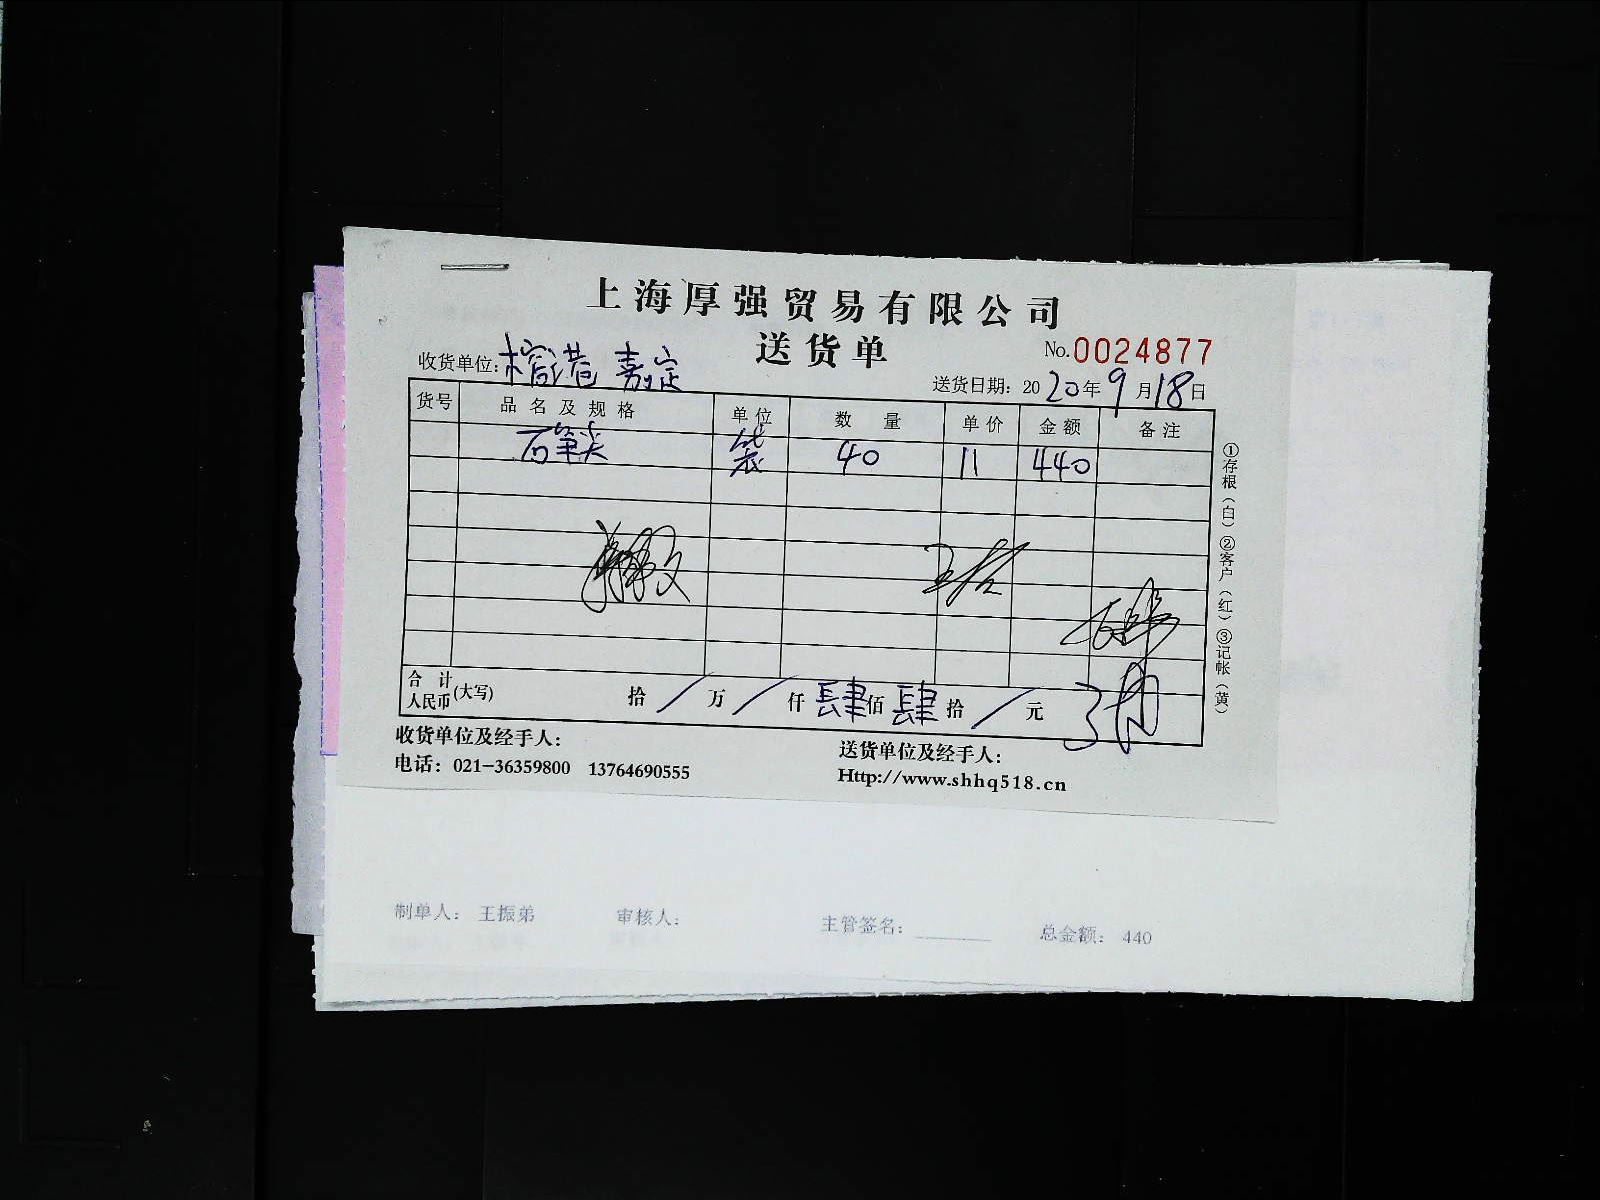 上海厚强贸易有限公司
送货单
No.0024877
收货单位: 嘉定
送货日期: 2020年9月18日
货号 品名及规格 单位 数量 单价 金额 备注
石笔尖 袋 40 11 440
合计人民币(大写) 拾/万/仟肆佰肆拾/元
收货单位及经手人:
送货单位及经手人:
电话: 021-36359800 13764690555
Http://www.shhq518.cn
①存根(白)②客户(红)③记帐(黄)
制单人: 王振弟 审核人: 主管签名: 总金额: 440